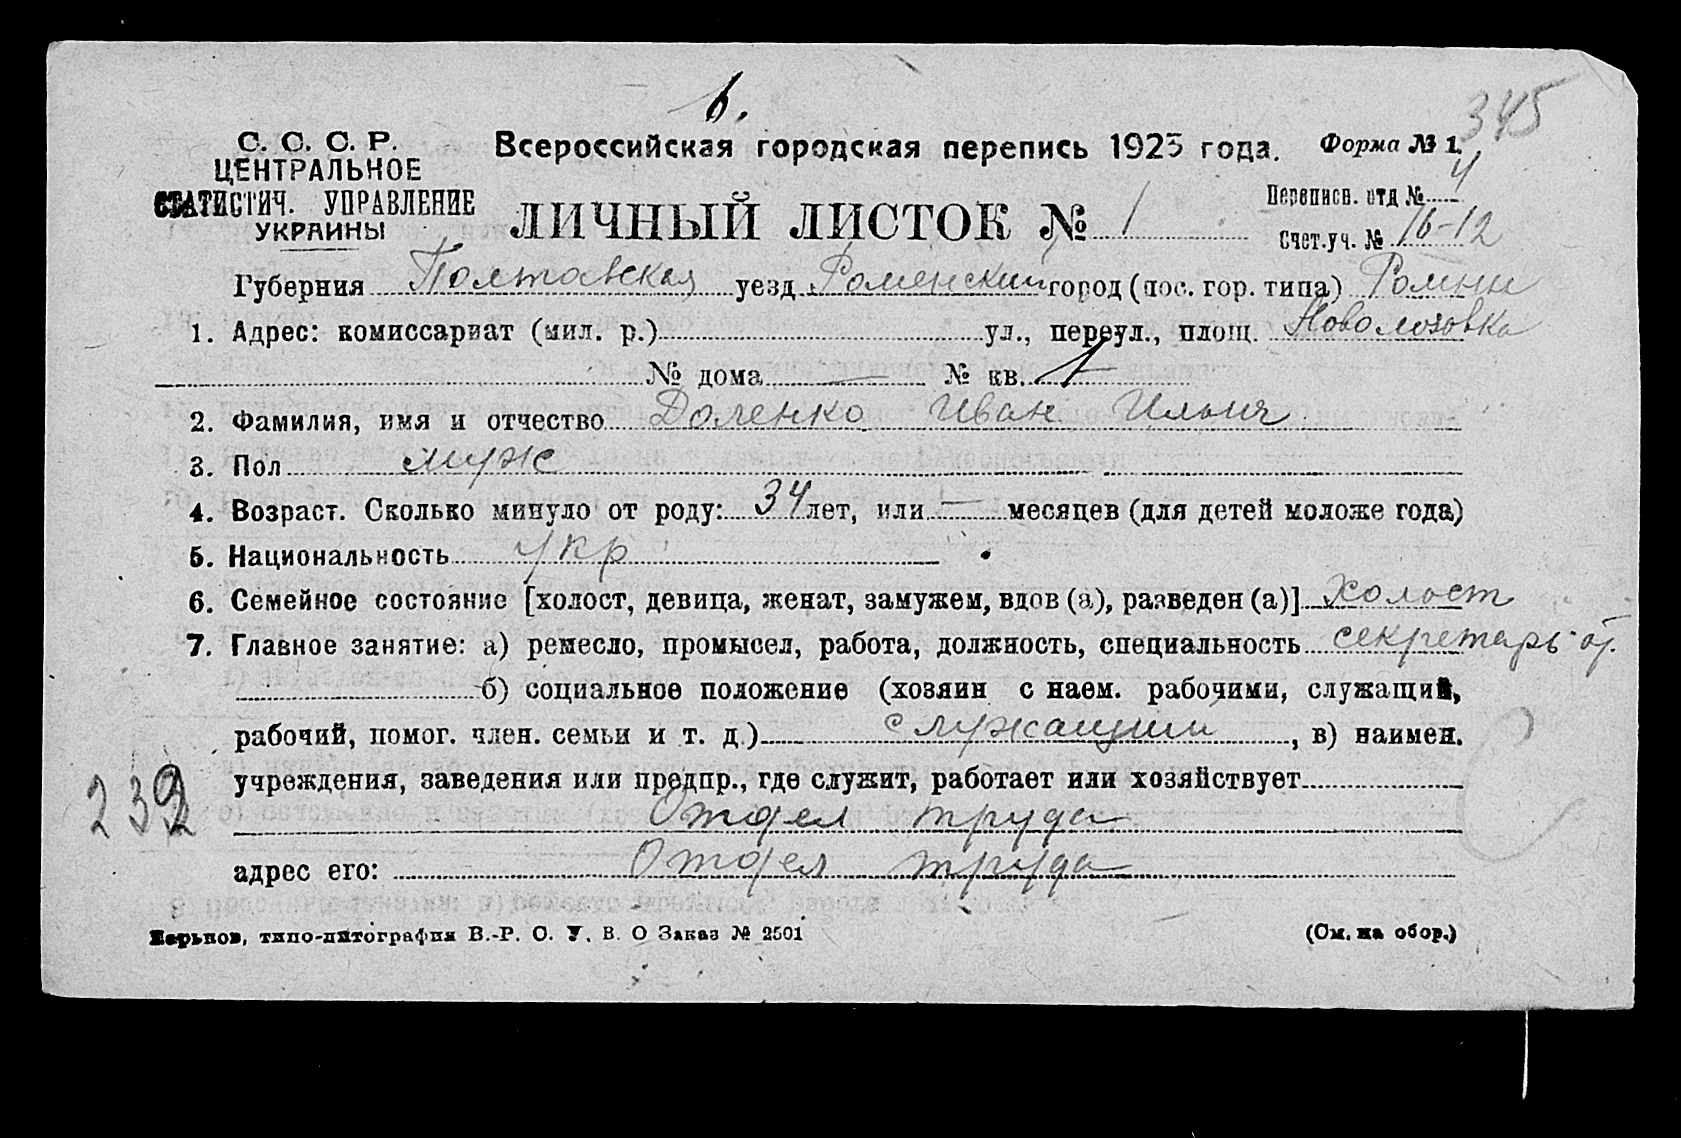 6.
345
С. С. С. Р.
ЦЕНТРАЛЬНОЕ
СТАТИСТИЧ. УПРАВЛЕНИЕ
УКРАИНЫ
Всероссийская городская перепись 1923 года.
Форма № 1.
ЛИЧНЫЙ ЛИСТОК № 1
Переписв. отд № 4
Счет.уч. № 16-12
Губерния Полтавская уезд Роменский город (пос. гор. типа) Ромни
1. Адрес: комиссариат (мил. р.) ул., переул., площ.
№ дома — № кв. 1
2. Фамилия, имя и отчество Доленко Иван Ильич
3. Пол муж
4. Возраст. Сколько минуло от роду: 34 лет, или — месяцев (для детей моложе года)
5. Национальность укр
6. Семейное состояние [холост, девица, женат, замужем, вдов (а), разведен (а)] холост
7. Главное занятие: а) ремесло, промысел, работа, должность, специальность секретарь от.
б) социальное положение (хозяин с наем. рабочими, служащий,
рабочий, помог. член. семьи и т. д.) служащий, в) наимен.
учреждения, заведения или предпр., где служит, работает или хозяйствует
Отдел труда
адрес его: Отдел труда
239
Харьков, типо-литография В.-Р. О. У. В. О Заказ № 2501
(См. на обор.)